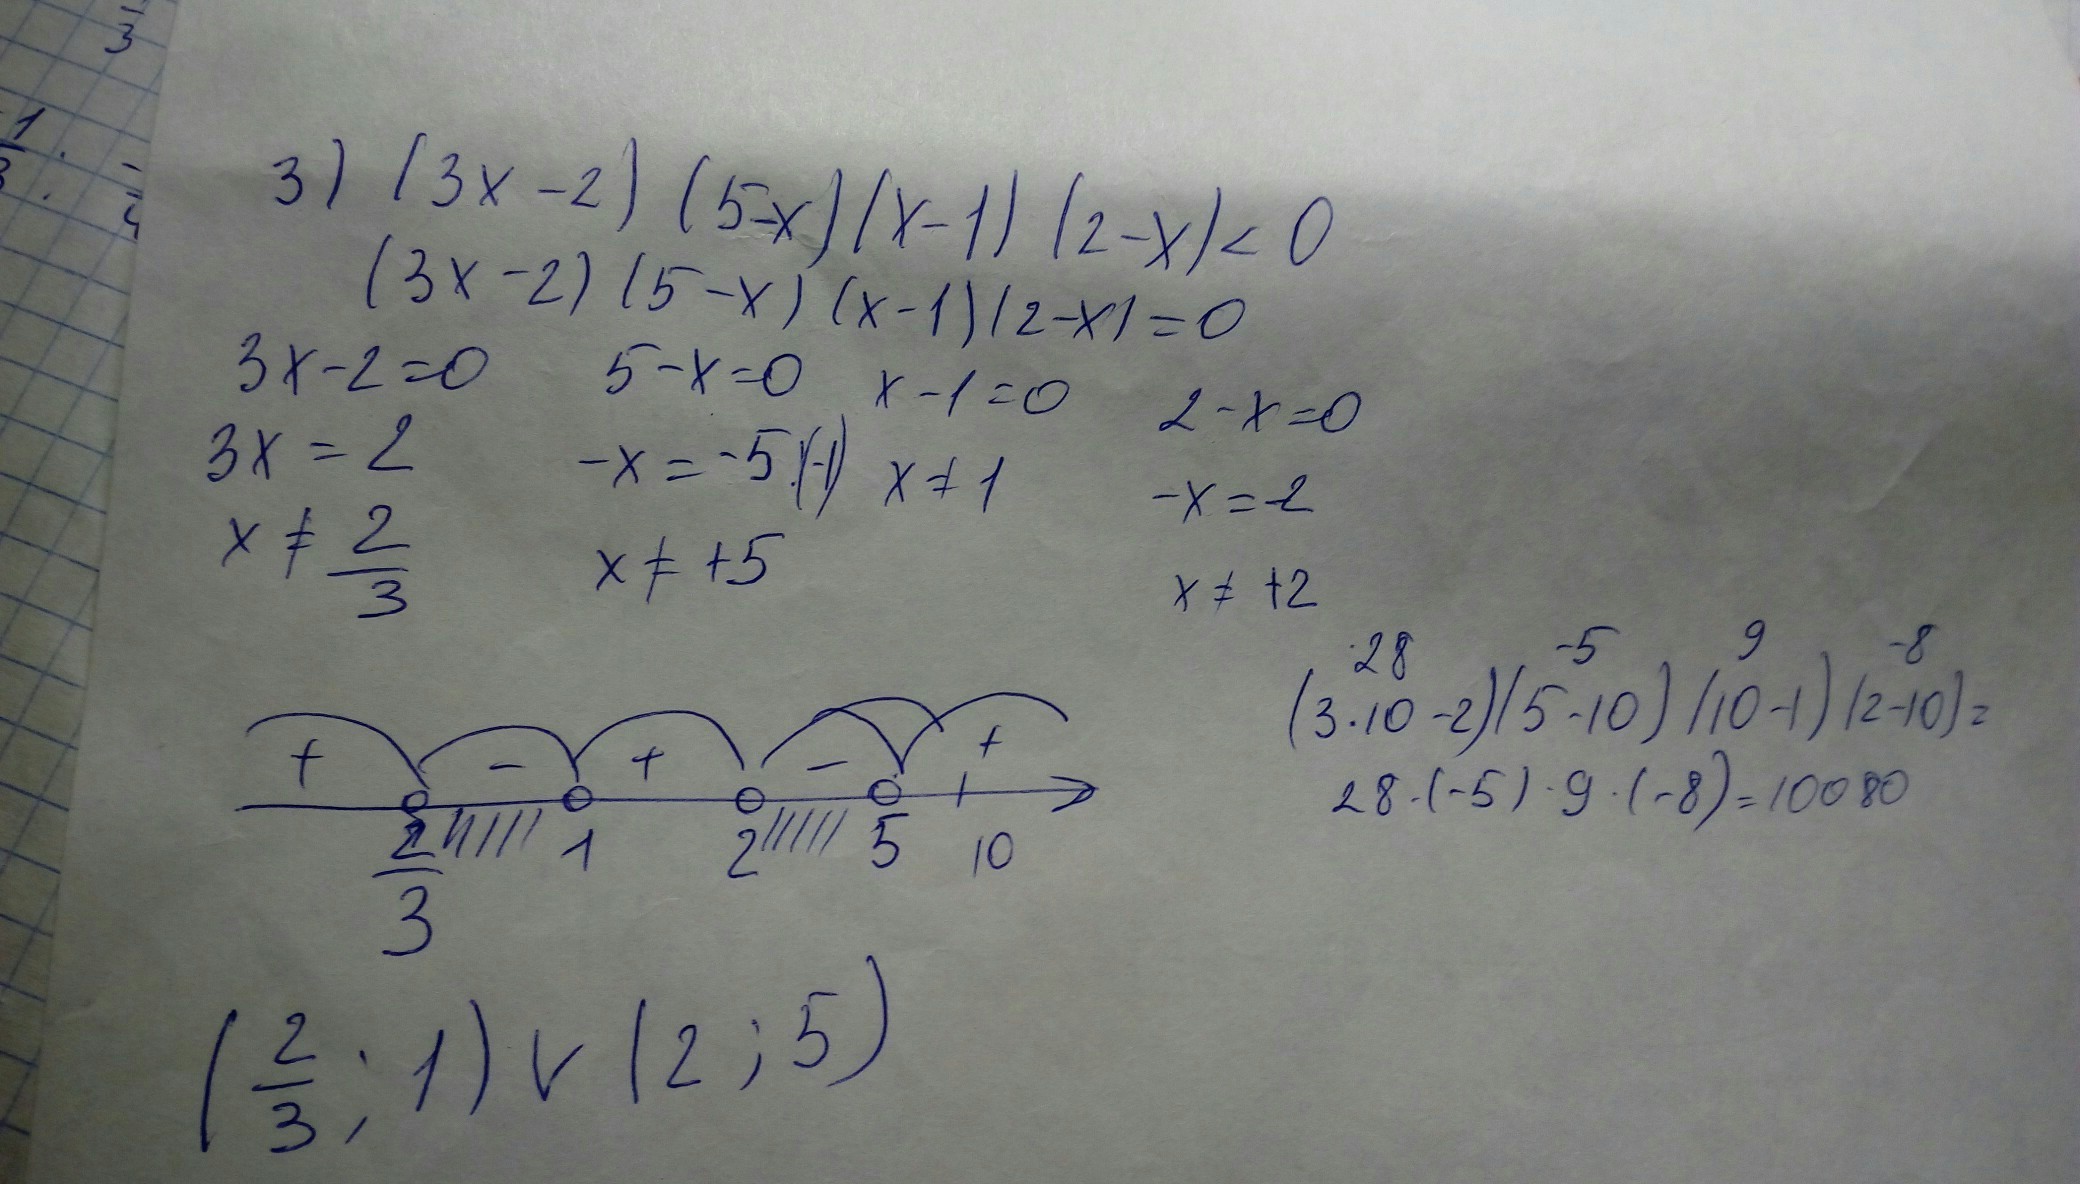 3) (3x-2) (5-x) (x-1) (2-x) < 0
(3x-2) (5-x) (x-1) (2-x) = 0
3x-2=0 5-x=0 x-1=0 2-x=0
3x = 2 -x = -5 ·(-1) x ≠ 1 -x = -2
x ≠ 2/3 x ≠ +5 x ≠ +2
28 -5 9 -8
(3·10-2)(5-10)(10-1)(2-10)=
28·(-5)·9·(-8)=10080
+ - + - +
2/3 1 2 5 10
(2/3; 1) v (2; 5)